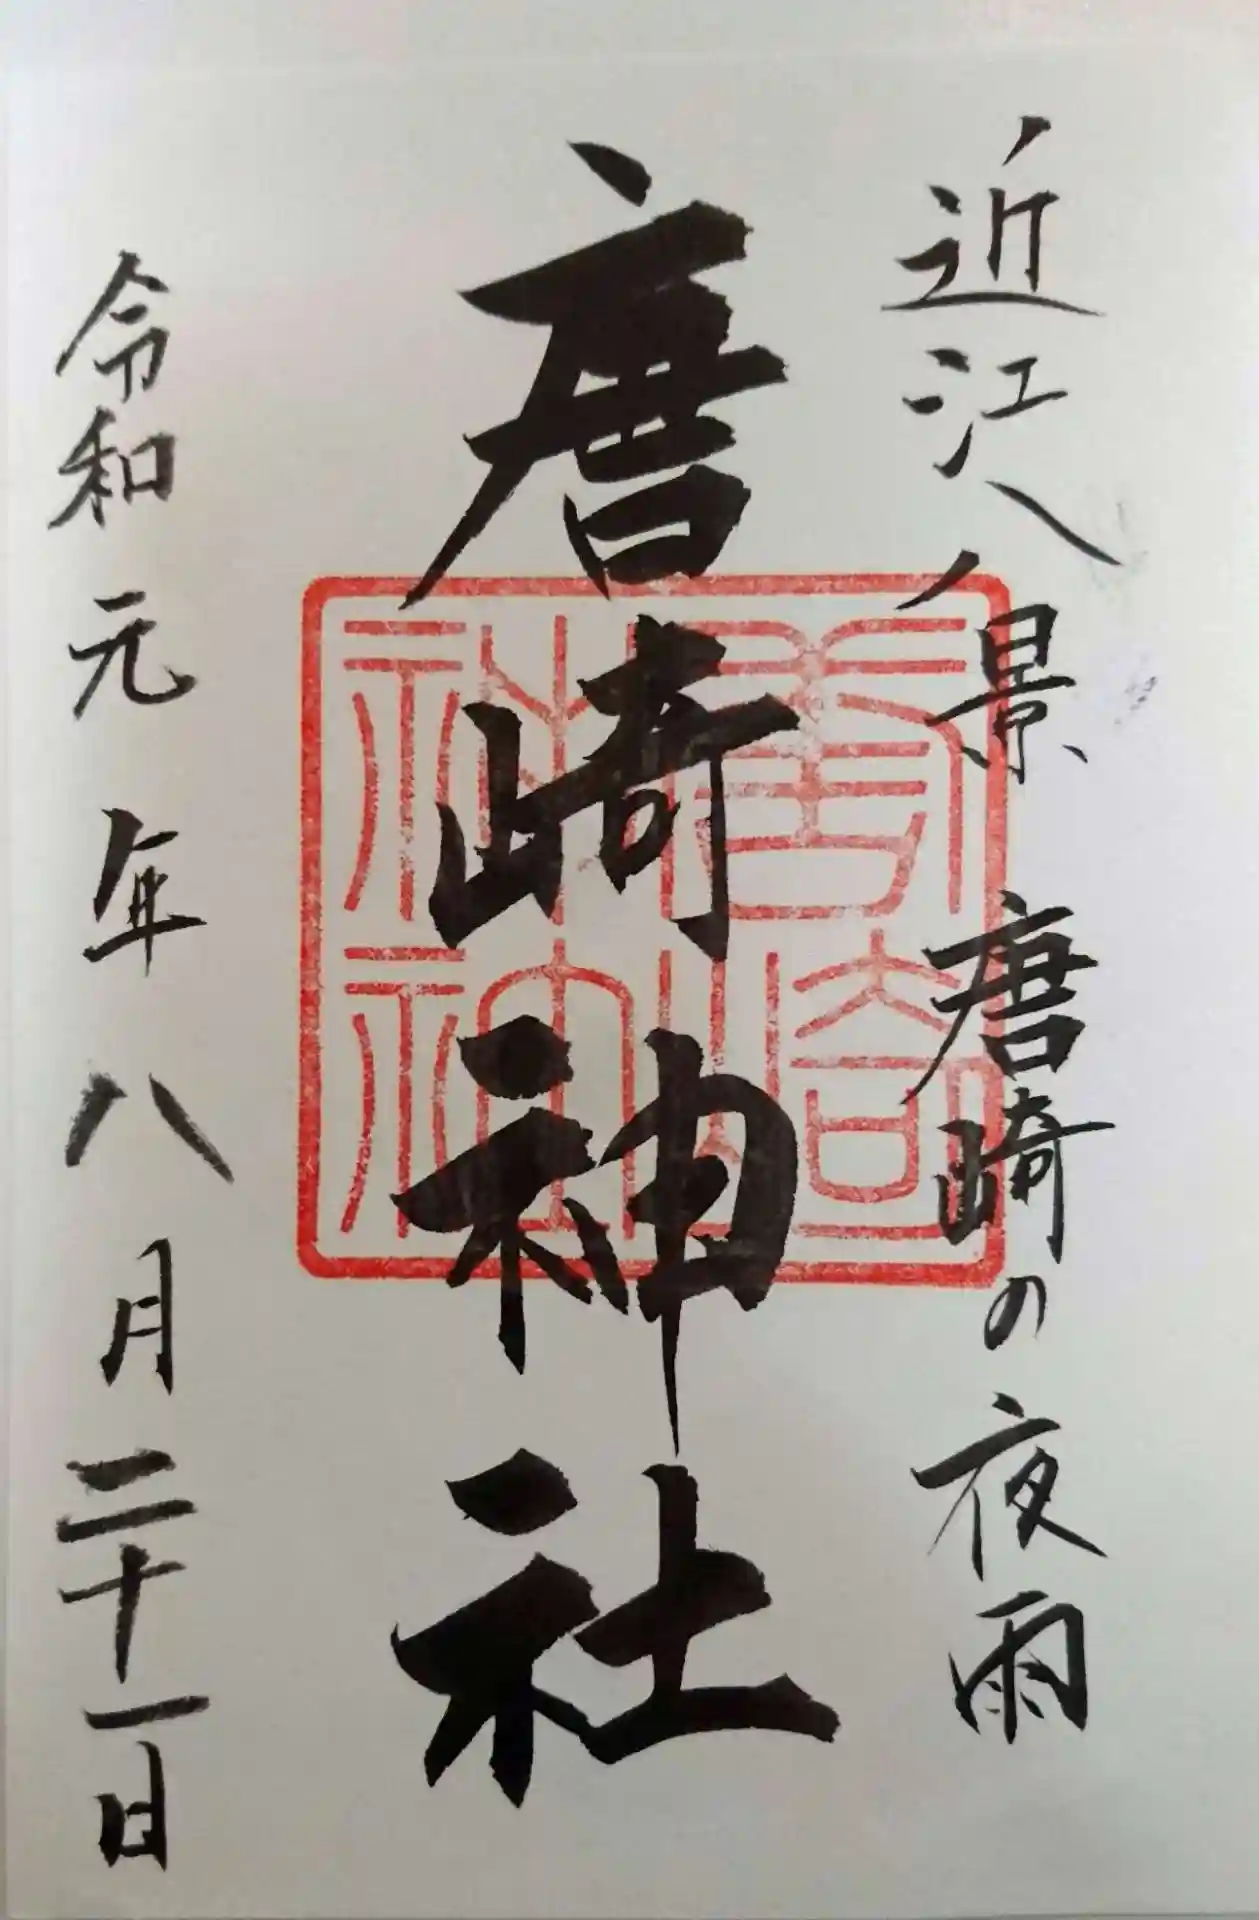 近江八景 唐崎の夜雨
唐崎神社
唐崎神社神
令和元年八月二十一日